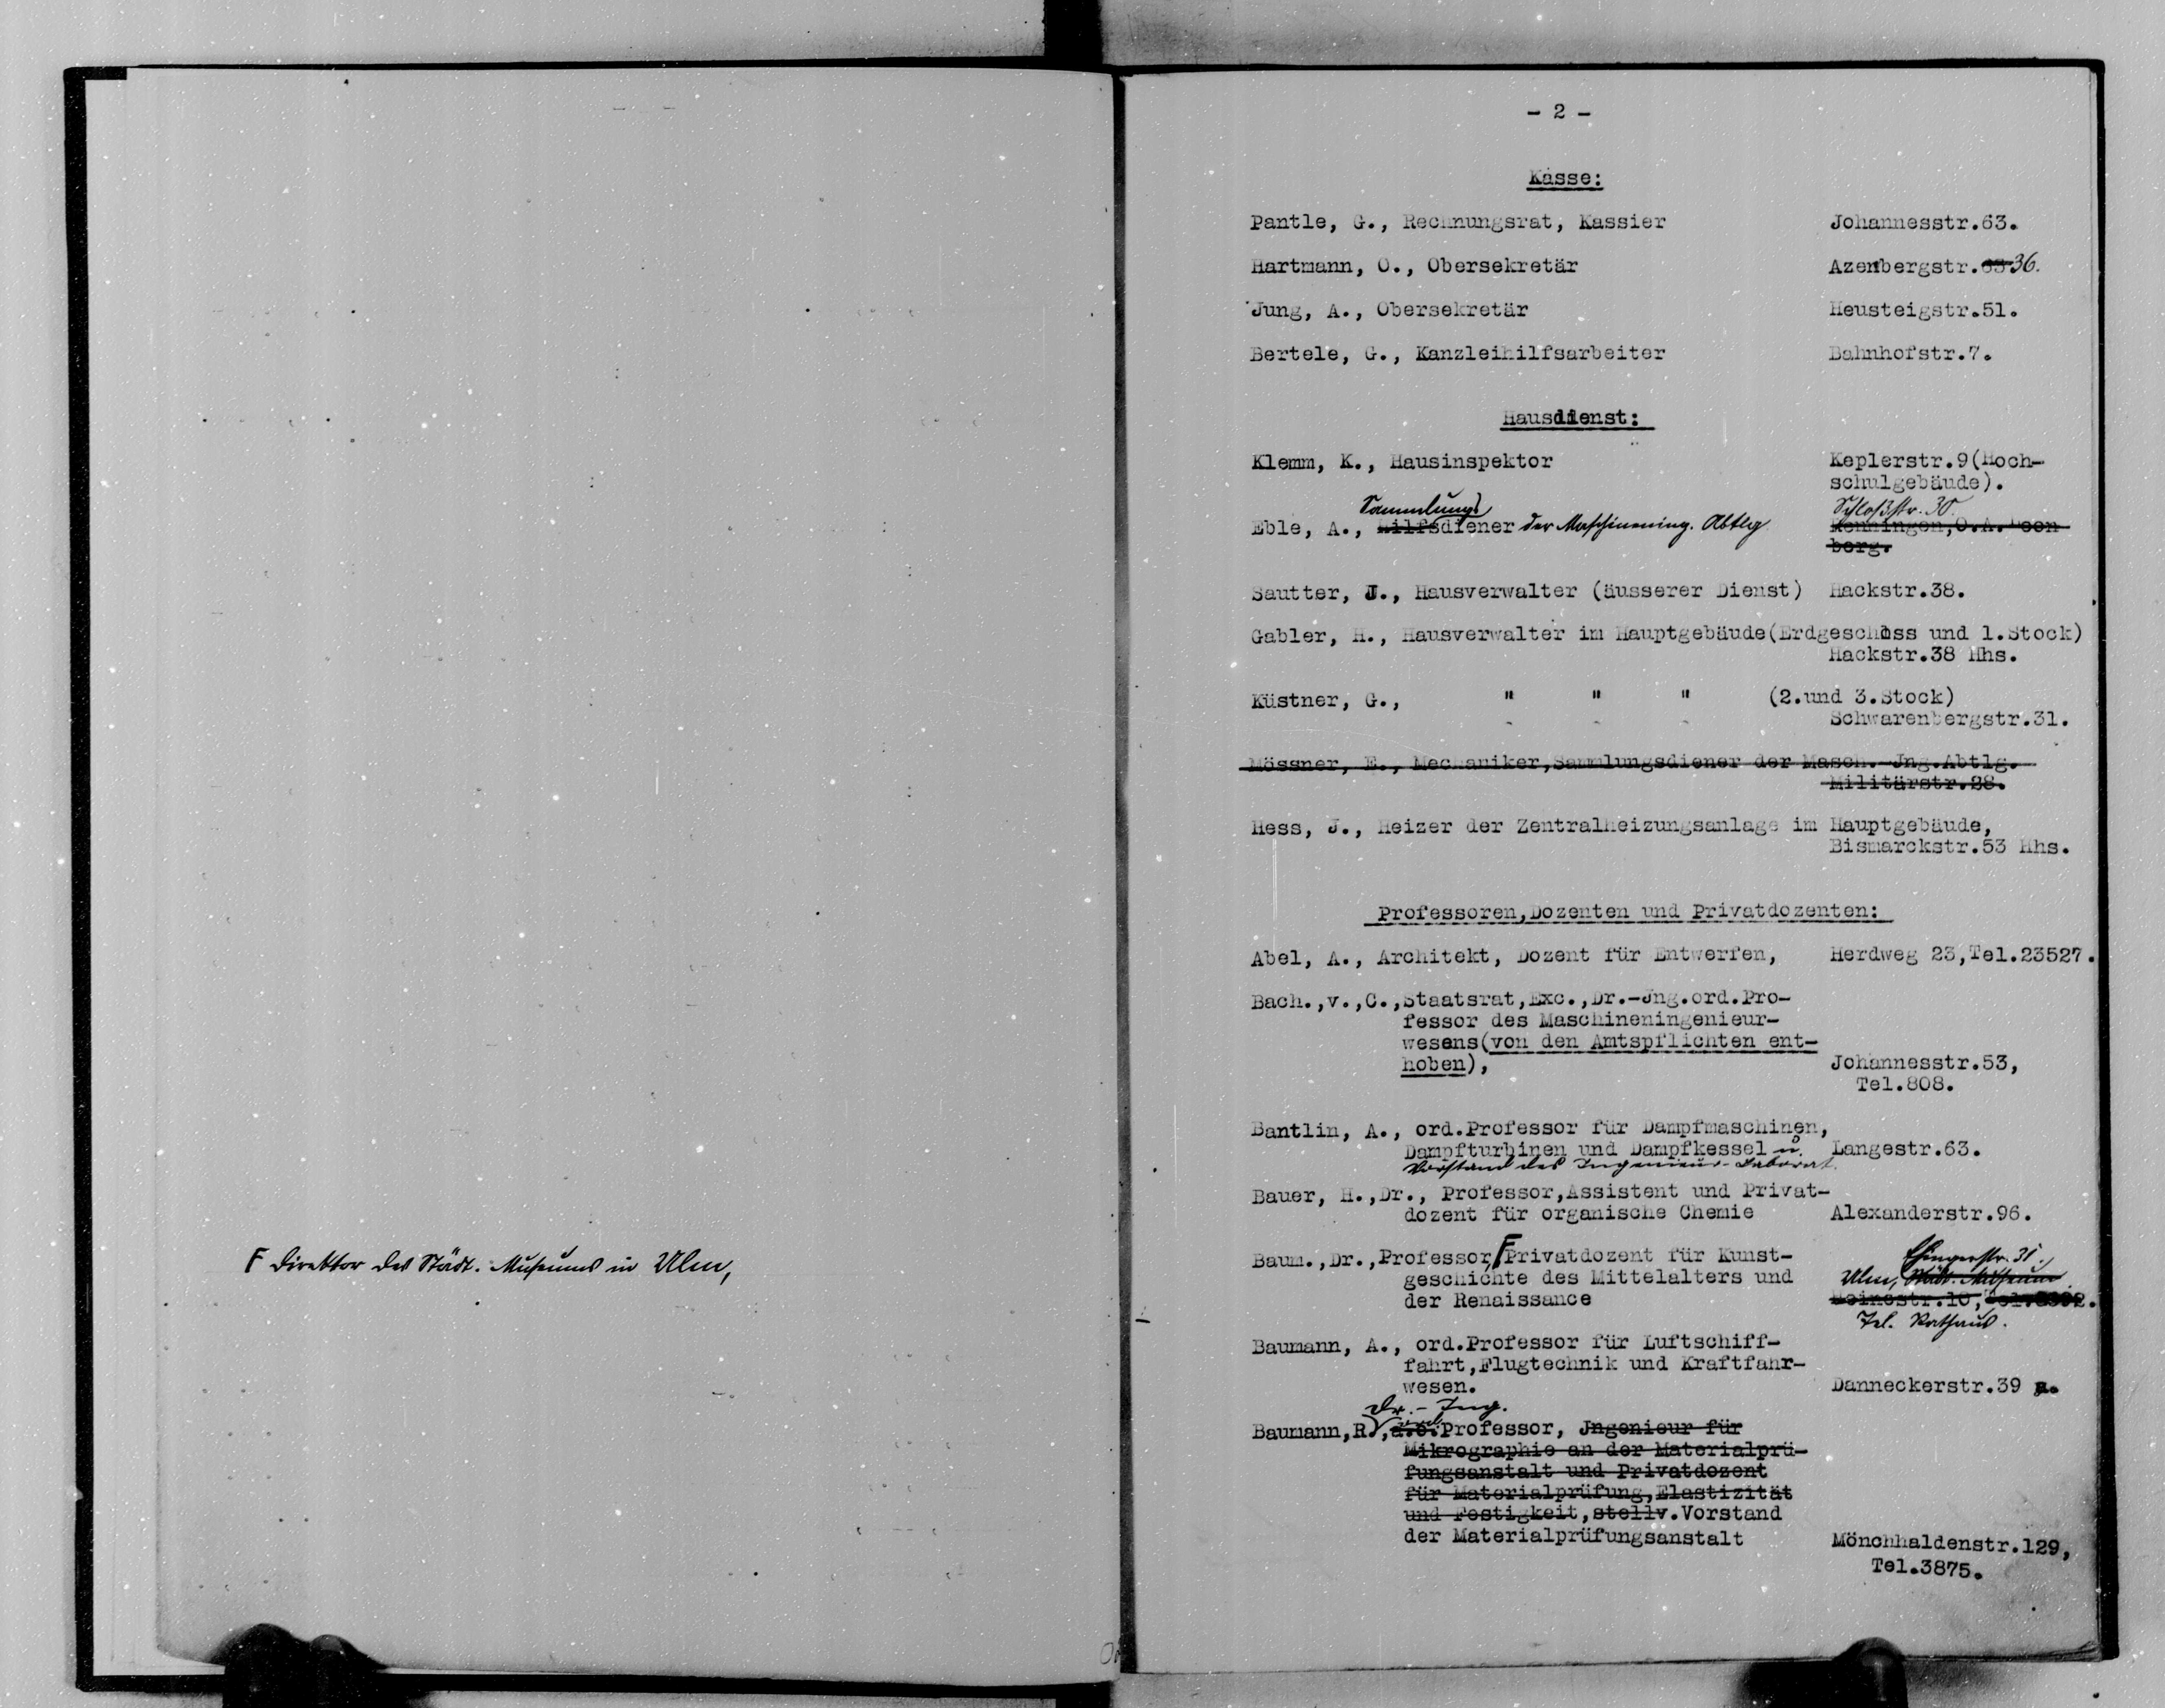 F Direktor des Städt. Museums in Ulm,
- 2 -
Kasse:
Pantle, G., Rechnungsrat, Kassier Johannesstr.63.
Hartmann, O., Obersekretär Azenbergstr. 36.
Jung, A., Obersekretär Heusteigstr.51.
Bertele, G., Kanzleihilfsarbeiter Bahnhofstr.7.
Hausdienst:
Klemm, K., Hausinspektor Keplerstr.9(Hoch-
schulgebäude).
Sammlungs Schloßstr. 30.
Eble, A., Hilfsdiener der Maschinening. Abtlg Renningen,O.A.Leon
berg.
Sautter, J., Hausverwalter (äusserer Dienst) Hackstr.38.
Gabler, H., Hausverwalter im Hauptgebäude(Erdgeschoss und 1.Stock)
Hackstr.38 Hhs.
Küstner, G., " " " (2.und 3.Stock)
Schwarenbergstr.31.
Mössner, E., Mechaniker,Sammlungsdiener der Masch.-Jng.Abtlg.
Militärstr.28.
Hess, J., Heizer der Zentralheizungsanlage im Hauptgebäude,
Bismarckstr.53 Hhs.
Professoren,Dozenten und Privatdozenten:
Abel, A., Architekt, Dozent für Entwerfen, Herdweg 23,Tel.23527.
Bach.,v.,C.,Staatsrat,Exc.,Dr.-Jng.ord.Pro-
fessor des Maschineningenieur-
wesens(von den Amtspflichten ent-
hoben), Johannesstr.53,
Tel.808.
Bantlin, A., ord.Professor für Dampfmaschinen,
Dampfturbinen und Dampfkessel u. Langestr.63.
Vorstand des Ingenieur-Laborat.
Bauer, H.,Dr., Professor,Assistent und Privat-
dozent für organische Chemie Alexanderstr.96.
Baum.,Dr.,Professor,F Privatdozent für Kunst- Ehingerstr. 31.,
geschichte des Mittelalters und Ulm, Städt. Museum
der Renaissance Heinestr.10,Tel.
Tel. Rathaus.
Baumann, A., ord.Professor für Luftschiff-
fahrt,Flugtechnik und Kraftfahr-
wesen. Danneckerstr.39 a.
Dr.-Ing.
Baumann,R.,a.o.Professor, Jngenieur für
Mikrographie an der Materialprü-
fungsanstalt und Privatdozent
für Materialprüfung,Elastizität
und Festigkeit,stellv.Vorstand
der Materialprüfungsanstalt Mönchhaldenstr.129,
Tel.3875.